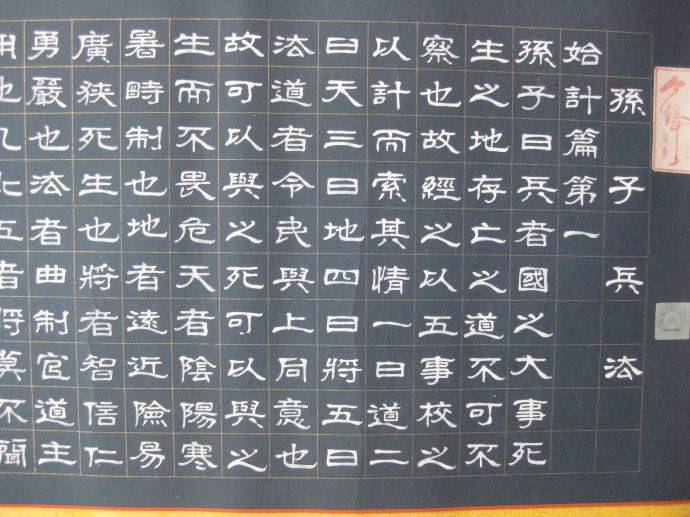 孫子兵法
始計篇第一
孫子曰兵者國之大事死
生之地存亡之道不可不
察也故經之以五事校之
以計而索其情一曰道二
曰天三曰地四曰將五曰
法道者令民與上同意也
故可以與之死可以與之
生而不畏危天者陰陽寒
暑時制也地者遠近險易
廣狹死生也將者智信仁
勇嚴也法者曲制官道主
用也凡此五者將莫不聞